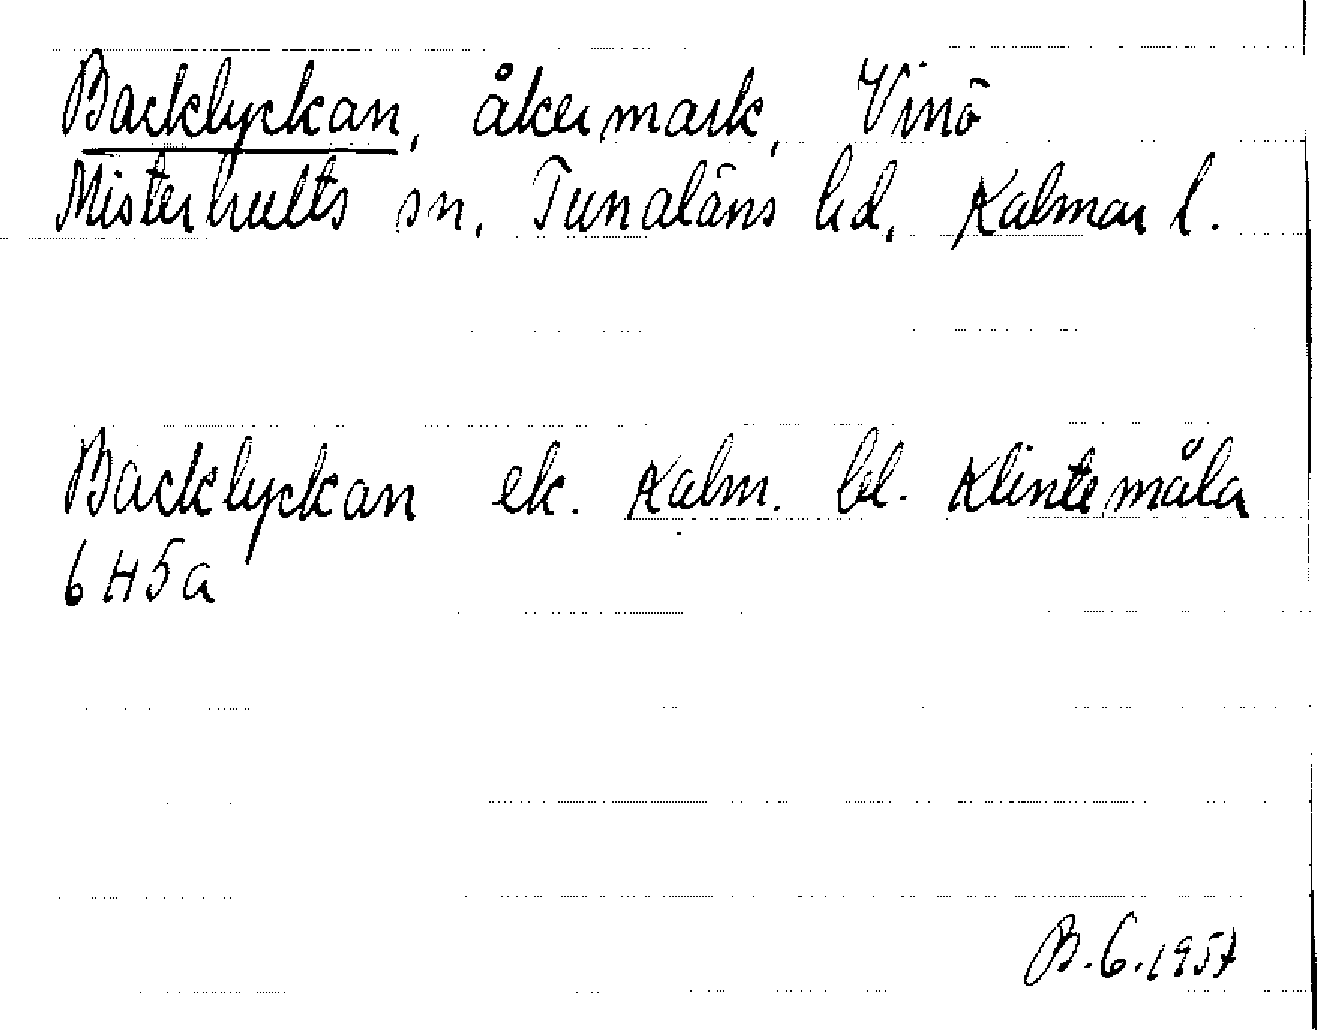 Backlyckan, åkermark, Vinö
Misterhults sn. Tunaläns hd. Kalmar l.
Backlyckan ek. Kalm. bl. Klintemåla
6 H 5 a
B.G. 1957